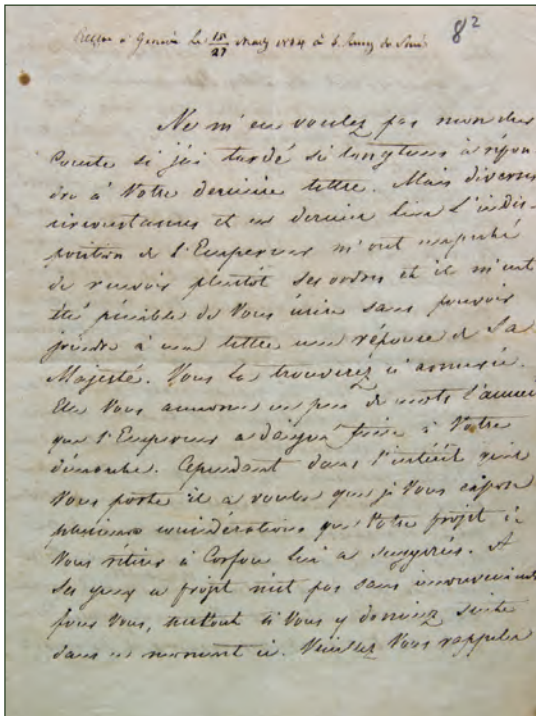 8²
à Genève le 15/27 à
Ne m'en voulez pas mon cher
Comte si j'ai tardé si longtems à répon
dre à Votre dernière lettre. Mais diverses
circonstances et en dernier lieu l'indis-
position de l'Empereur m'ont empêché
de recevoir plustôt ses ordres et il m'eut
été pénible de Vous écrire sans pouvoir
joindre à ma lettre une réponse de Sa
Majesté. Vous la trouverez ci annexée.
Elle Vous annonce en peu de mots l'accueil
que l'Empereur a daigné faire à Votre
démarche. Cependant dans l'intérêt qu'il
Vous porte il a voulu que je Vous expose
plusieurs considérations que Votre projet de
Vous retirer à Corfou lui a suggérées. A
ses yeux ce projet n'est pas sans inconvénients
pour Vous, surtout si Vous y donniez suite
dans ce moment ci. Veuillez Vous rappeler